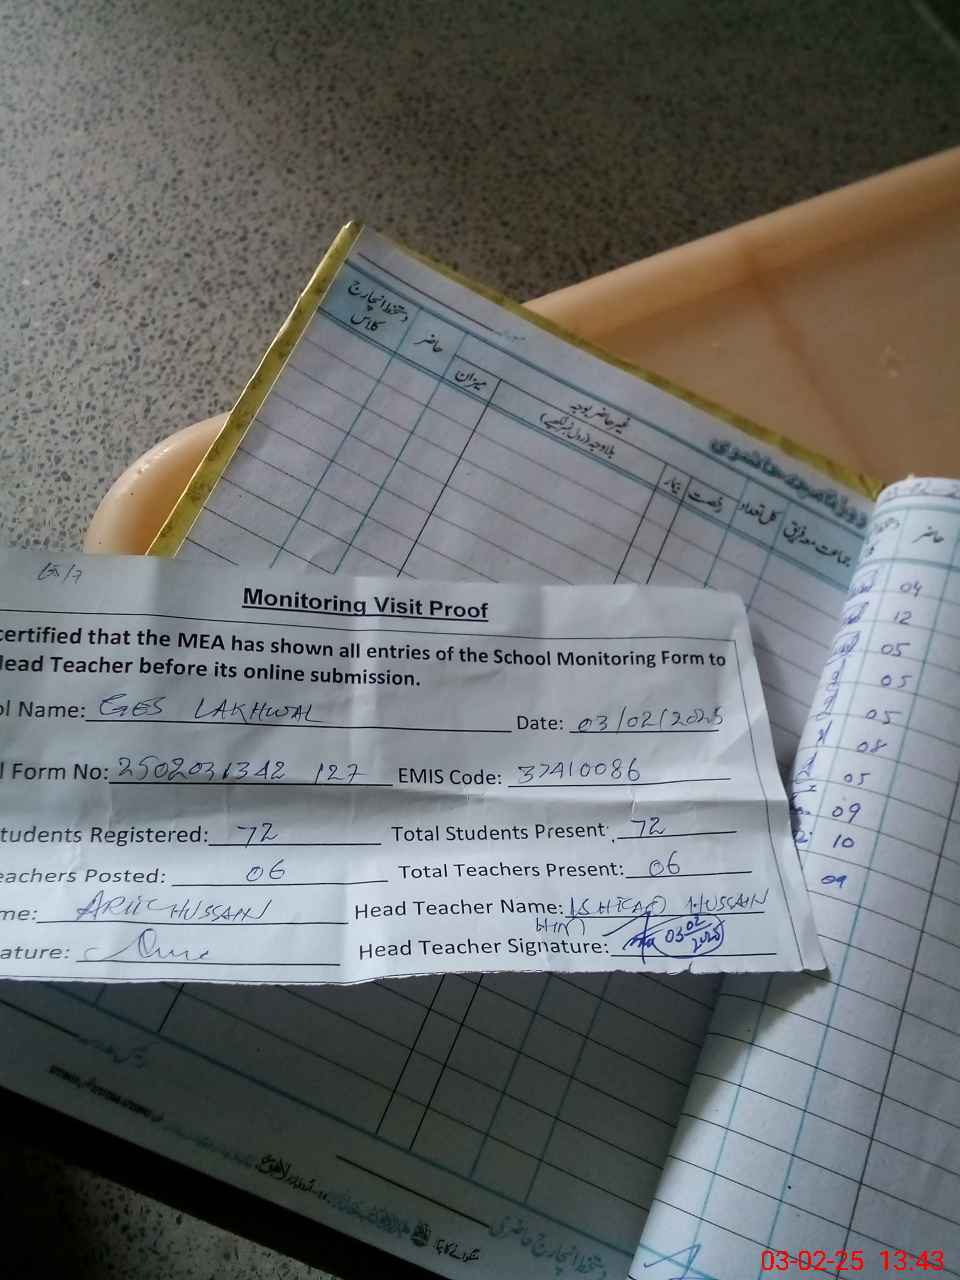 دستخط انچارج کلاس
حاضر
میزان
غیر حاضر بوجہ
بلاوجہ (رول نمبر لکھیے)
بیمار
رخصت
کل تعداد
جماعت معہ فریق
روزنامچہ حاضری
حاضر
04
12
05
05
05
08
05
09
10
09
Monitoring Visit Proof
certified that the MEA has shown all entries of the School Monitoring Form to
Head Teacher before its online submission.
ol Name: GES LAKHWAL Date: 03/02/2025
l Form No: 2502031342 127 EMIS Code: 37410086
tudents Registered: 72 Total Students Present: 72
eachers Posted: 06 Total Teachers Present: 06
me: HUSSAIN Head Teacher Name: ISHTIAQ HUSSAIN
ature: Head Teacher Signature: 03 02 2025
دستخط انچارج حاضری
03-02-25 13:43